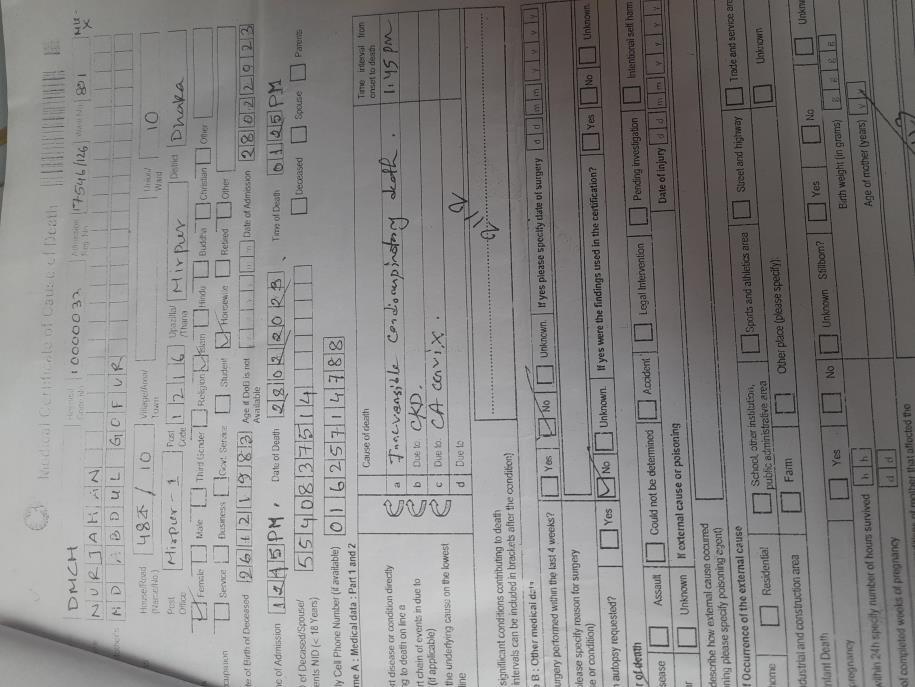 Medical Certificate of Cause of Death
DMCH 10000033 17546/126 801 MU-X
NURJAHAN
MD. ABDUL GOFUR
House/Road (Name/No.) 48 / 10 Village/Area/Town Union/Ward 10
Post Office Mirpur-1 Post Code 1216 Upazilla/Thana Mirpur District Dhaka
Female Male Third Gender Religion Islam Hindu Buddha Christian Other
Service Business Govt. Service Student Housewife Retired Other
te of Birth of Deceased 26121983 Age if DoB is not Available Date of Admission 28022023
e of Admission 1245PM. Date of Death 28022023 Time of Death 0125PM
of Deceased/Spouse/ents NID (< 18 Years) 5540837514 Deceased Spouse Parents
ly Cell Phone Number (if available) 01625714788
me A : Medical data : Part 1 and 2 Cause of death Time interval from onset to death
rt disease or condition directly
ng to death on line a a Irreversible cardiorespiratory death. 1:45 pm
rt chain of events in due to b Due to: CKD.
(if applicable) c Due to: CA cervix.
the underlying cause on the lowest line d Due to
significant conditions contributing to death
intervals can be included in brackets after the condition)
e B : Other medical data
urgery performed within the last 4 weeks? Yes No Unknown If yes please specify date of surgery d d m m y y y y
lease specify reason for surgery
se or condition)
autopsy requested? Yes No Unknown If yes were the findings used in the certification? Yes No Unknown
r of death
sease Assault Could not be determined Accident Legal Intervention Pending investigation Intentional self harm
Unknown If external cause or poisoning Date of injury d d m m y y y y
describe how external cause occurred
ning please specify poisoning agent)
f Occurrence of the external cause
home Residential School, other institution, public administrative area Sports and athletics area Street and highway Trade and service are
ndustrial and construction area Farm Other place (please specify): Unknown
nfant Death
regnancy Yes No Unknown Stillborn? Yes No Unkn
within 24h specify number of hours survived h h Birth weight (in grams) g g g g
of completed weeks of pregnancy d d Age of mother (years) y
of mother that affected the